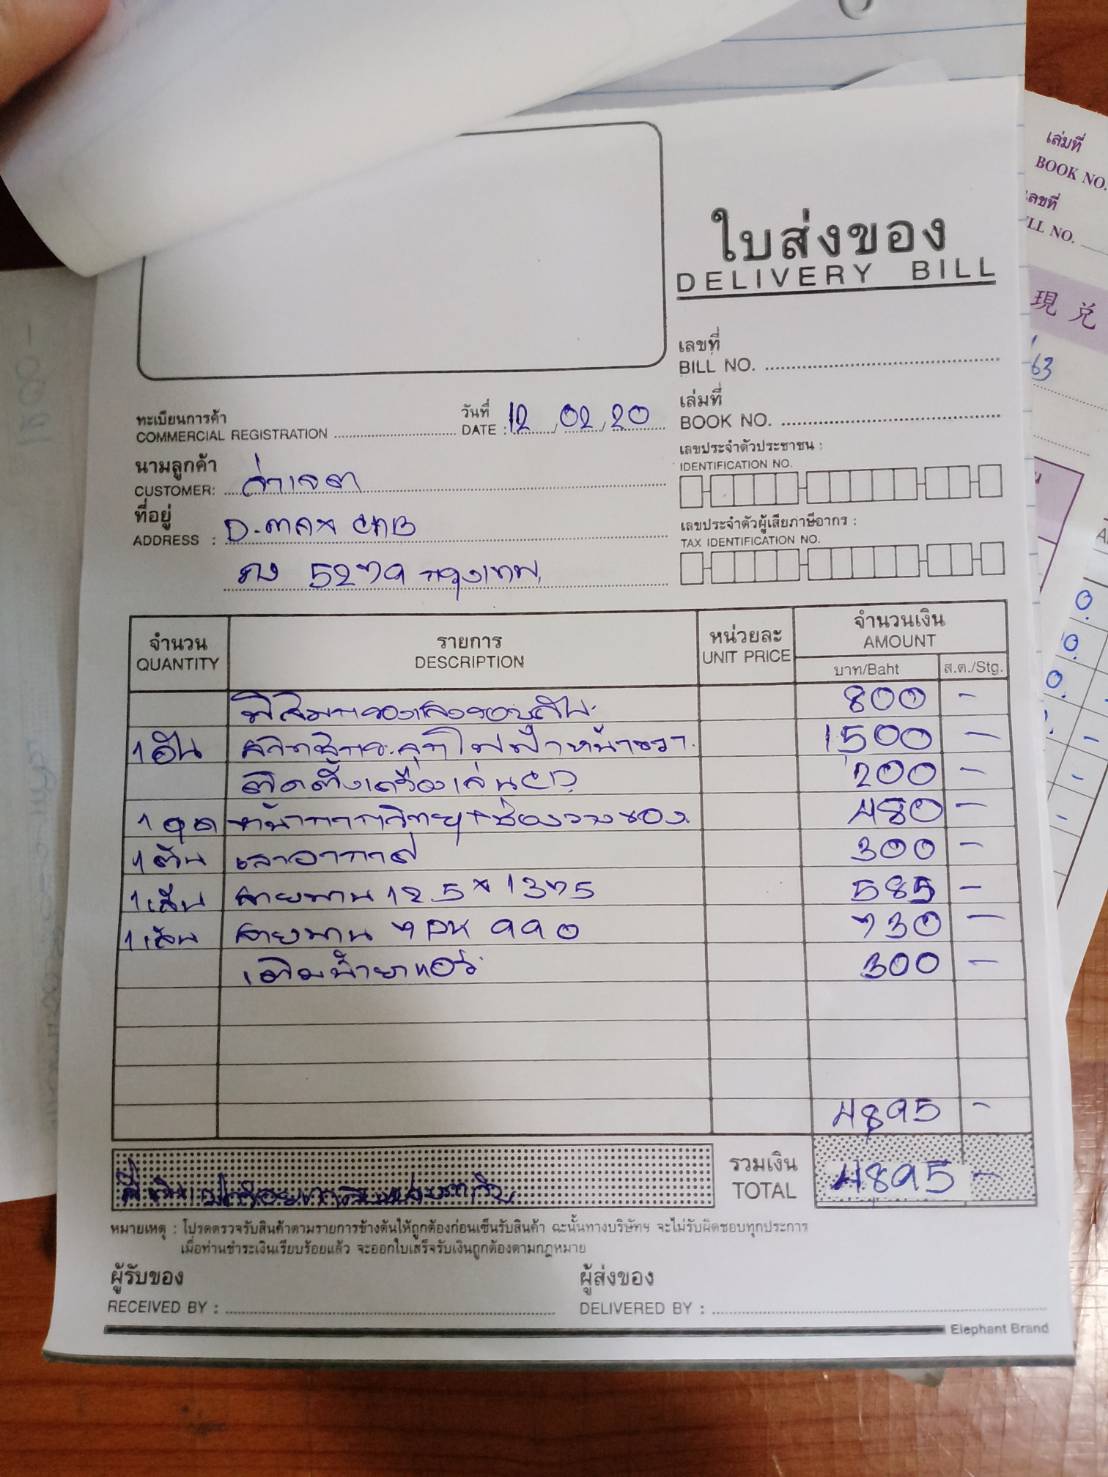 เล่มที่
BOOK NO.
เลขที่
LL NO.
現 兑
63
ใบส่งของ
DELIVERY BILL
เลขที่
BILL NO.
ทะเบียนการค้า
COMMERCIAL REGISTRATION
วันที่
DATE : 12 , 02 , 20
เล่มที่
BOOK NO.
นามลูกค้า
CUSTOMER:
เลขประจำตัวประชาชน :
IDENTIFICATION NO.
ที่อยู่
ADDRESS : D-max CAB
เลขประจำตัวผู้เสียภาษีอากร :
TAX IDENTIFICATION NO.
5279 กรุงเทพ
จำนวน รายการ หน่วยละ จำนวนเงิน
QUANTITY DESCRIPTION UNIT PRICE AMOUNT
บาท/Baht ส.ต./Stg.
800 -
1 อัน สวิทซ์ กระจกไฟฟ้าหน้าขวา 1500 -
ติดตั้งเครื่องเล่น 200 -
1 ชุด หน้ากากวิทยุ+ช่องวางของ 480 -
1 ต้น เสาอากาศ 300 -
1 เส้น สายพาน 12.5 x 1375 585 -
1 เส้น สายพาน 7PK 990 730 -
เติมน้ำยาแอร์ 300 -
4895 -
รวมเงิน
TOTAL 4895 -
หมายเหตุ : โปรดตรวจรับสินค้าตามรายการข้างต้นให้ถูกต้องก่อนเซ็นรับสินค้า ฉะนั้นทางบริษัทฯ จะไม่รับผิดชอบทุกประการ
เมื่อท่านชำระเงินเรียบร้อยแล้ว จะออกใบเสร็จรับเงินถูกต้องตามกฎหมาย
ผู้รับของ
RECEIVED BY :
ผู้ส่งของ
DELIVERED BY :
Elephant Brand